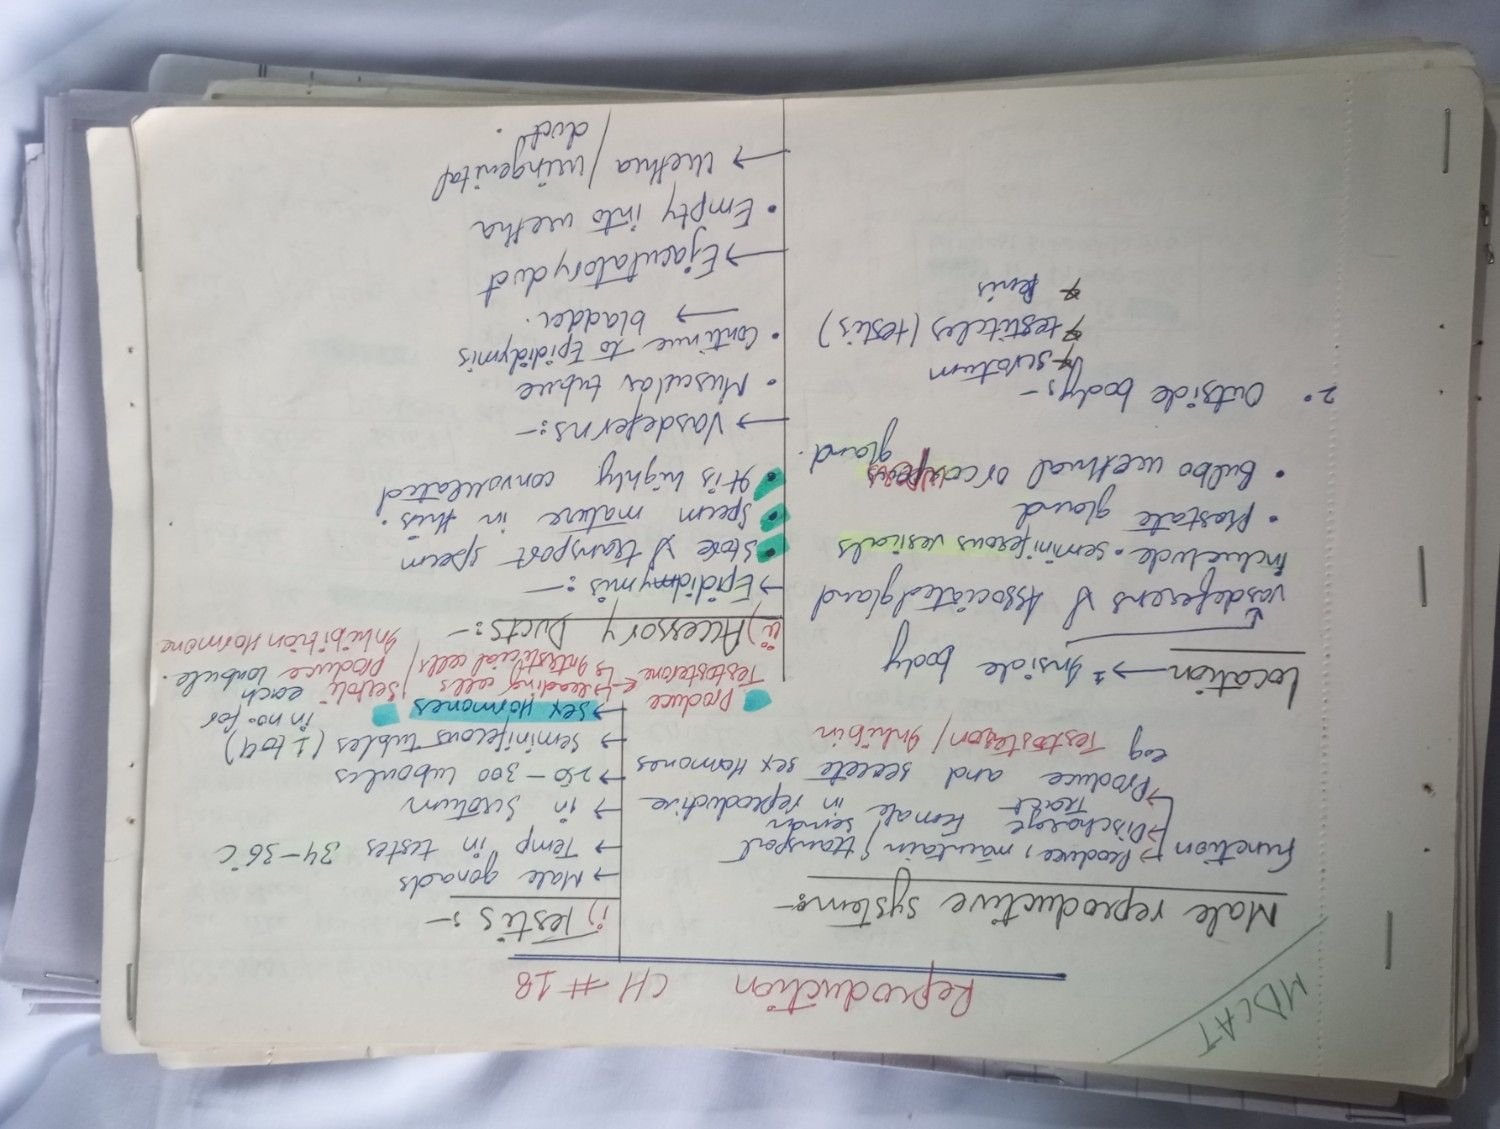 MDCAT
Reproduction CH # 18
Male reproductive system:-
Function → Produce, maintain, transport
→ Discharge semen
Female in reproductive
Tract
→ Produce and secrete sex Hormones
eg Testosteron / Inhibin
Location → 1. Inside body
vasdeferens & Associated gland
Incluelude • seminiferous vesicals
• Prostate gland
• Bulbo urethral or cowpers
gland.
2. Outside body:-
* scrotum
* testicles (testis)
* Penis
i) Testis:-
→ Male gonads
→ Temp in testes 34-36°C
→ in Scrotum
→ 250-300 luboules
→ seminiferous tubles (1 to 4)
in no. for
each
→ sex Hormones
Produce
Testosterone
→ Leading cells
↳ Interstitial cells
Sertoli
produce
Inhibition Hormone
ii) Accessory Ducts:-
→ Epididmymis:-
• Store & transport sperm
• Sperm mature in this.
• It is highly convoulated
→ Vasdeferns:-
• Muscular tubue
• Continue to Epididymis
→ bladder.
→ Ejaculatory duct
• Empty into urethra
→ Urethra / uringenital
duct.